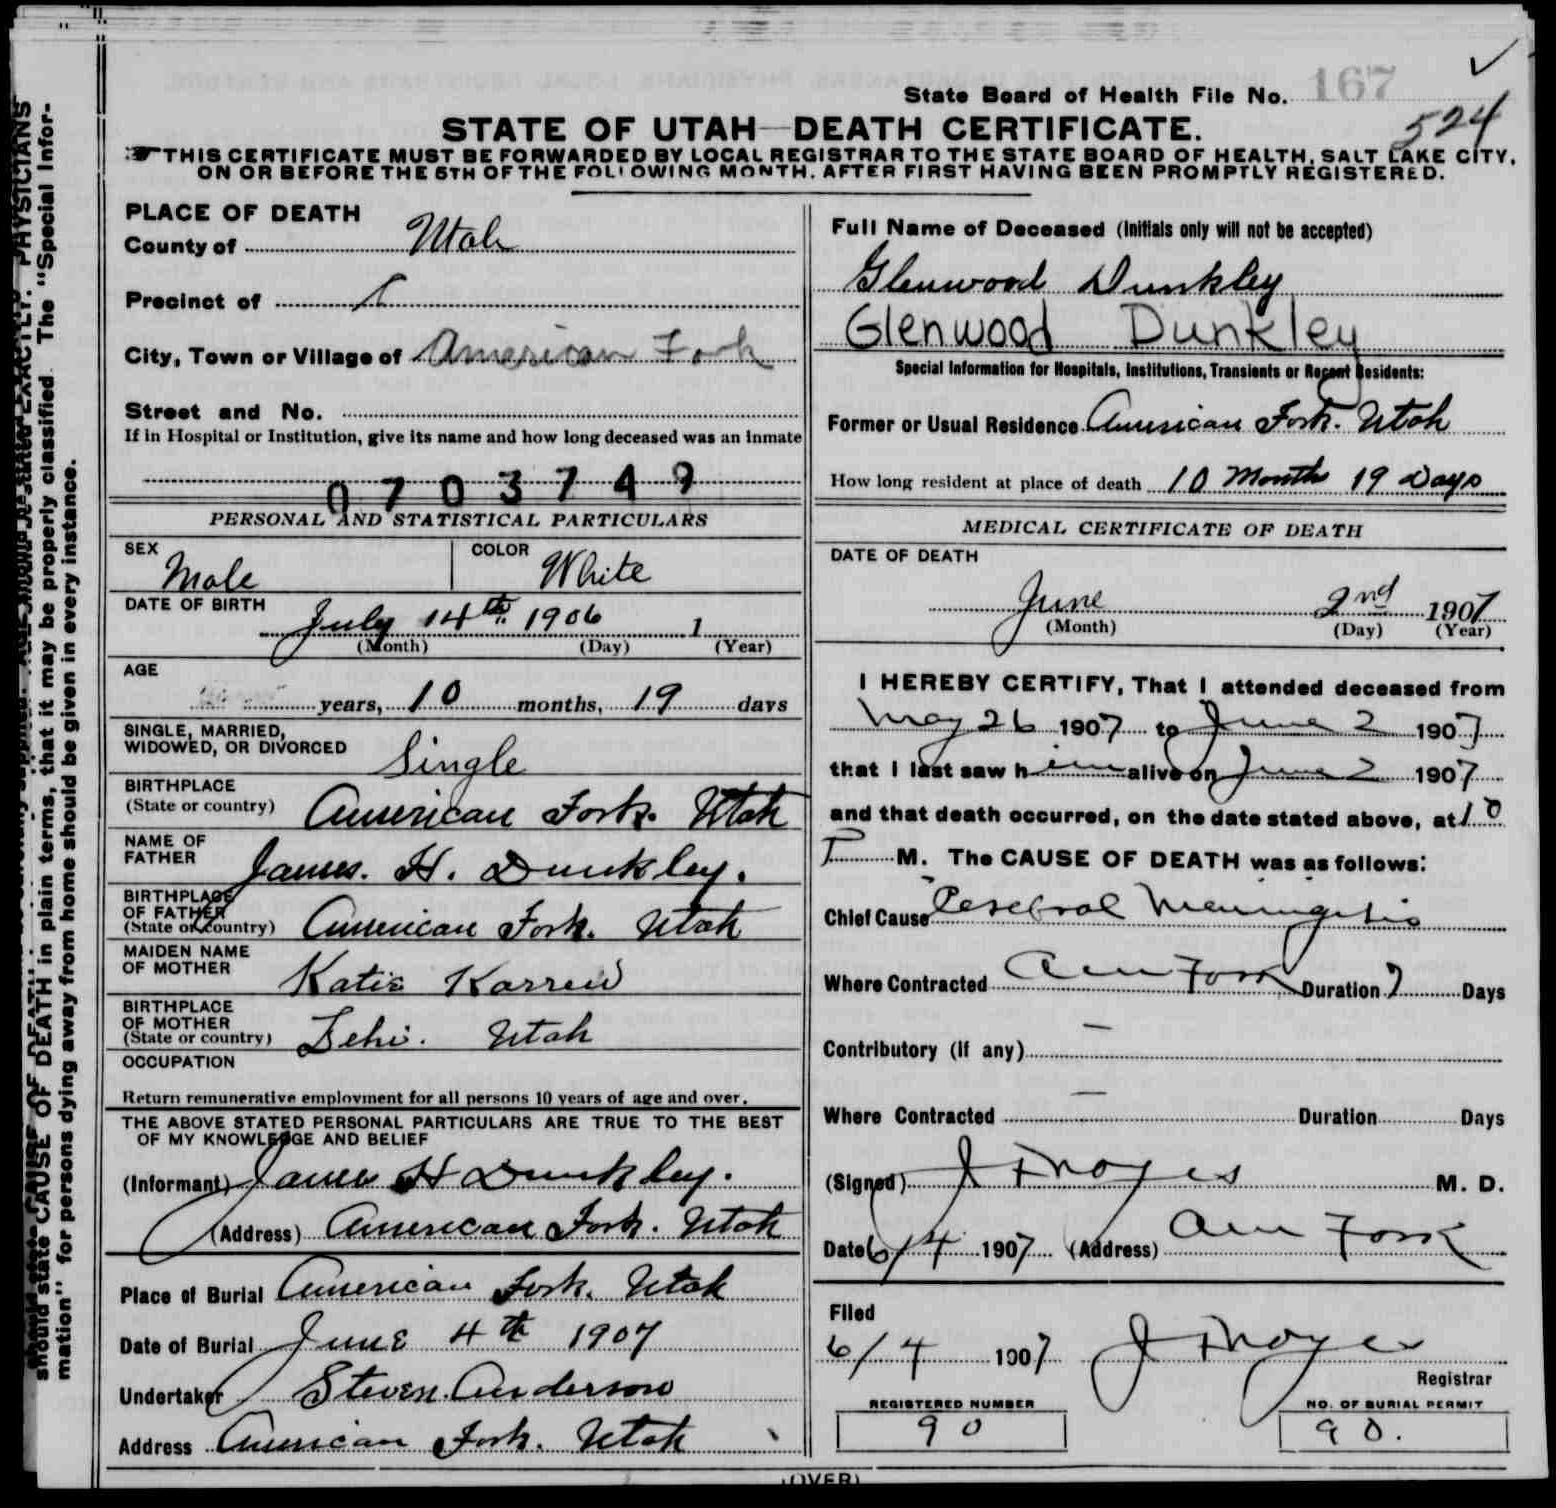 State Board of Health File No. 167
524
STATE OF UTAH—DEATH CERTIFICATE.
THIS CERTIFICATE MUST BE FORWARDED BY LOCAL REGISTRAR TO THE STATE BOARD OF HEALTH, SALT LAKE CITY,
ON OR BEFORE THE 5TH OF THE FOLLOWING MONTH, AFTER FIRST HAVING BEEN PROMPTLY REGISTERED.
PLACE OF DEATH
County of Utah
Precinct of
City, Town or Village of American Fork
Street and No.
If in Hospital or Institution, give its name and how long deceased was an inmate
0703749
PERSONAL AND STATISTICAL PARTICULARS
SEX Male COLOR White
DATE OF BIRTH
July 14th 1906 1
(Month) (Day) (Year)
AGE
years, 10 months, 19 days
SINGLE, MARRIED,
WIDOWED, OR DIVORCED Single
BIRTHPLACE
(State or country) American Fork. Utah
NAME OF
FATHER James. H. Dunkley.
BIRTHPLACE
OF FATHER
(State or country) American Fork. Utah
MAIDEN NAME
OF MOTHER Katie Karren
BIRTHPLACE
OF MOTHER
(State or country) Lehi. Utah
OCCUPATION
Return remunerative employment for all persons 10 years of age and over.
THE ABOVE STATED PERSONAL PARTICULARS ARE TRUE TO THE BEST
OF MY KNOWLEDGE AND BELIEF
(Informant) James H Dunkley.
(Address) American Fork. Utah
Place of Burial American Fork. Utah
Date of Burial June 4th 1907
Undertaker Steven Anderson
Address American Fork. Utah
Full Name of Deceased (Initials only will not be accepted)
Glenwood Dunkley
Glenwood Dunkley
Special Information for Hospitals, Institutions, Transients or Recent Residents:
Former or Usual Residence American Fork. Utah
How long resident at place of death 10 Month 19 Days
MEDICAL CERTIFICATE OF DEATH
DATE OF DEATH
June 2nd 1907
(Month) (Day) (Year)
I HEREBY CERTIFY, That I attended deceased from
May 26 1907 to June 2 1907
that I last saw him alive on June 2 1907
and that death occurred, on the date stated above, at 10
P M. The CAUSE OF DEATH was as follows:
Chief Cause Cerebral Meningitis
Where Contracted Am Fork Duration 7 Days
Contributory (if any) —
Where Contracted — Duration Days
(Signed) J F Noyes M. D.
Date 6/4 1907 (Address) Am Fork
Filed
6/4 1907 J F Noyes
Registrar
REGISTERED NUMBER
90
NO. OF BURIAL PERMIT
90.
(OVER)
should state CAUSE OF DEATH in plain terms, that it may be properly classified. The "Special Infor-
mation" for persons dying away from home should be given in every instance.